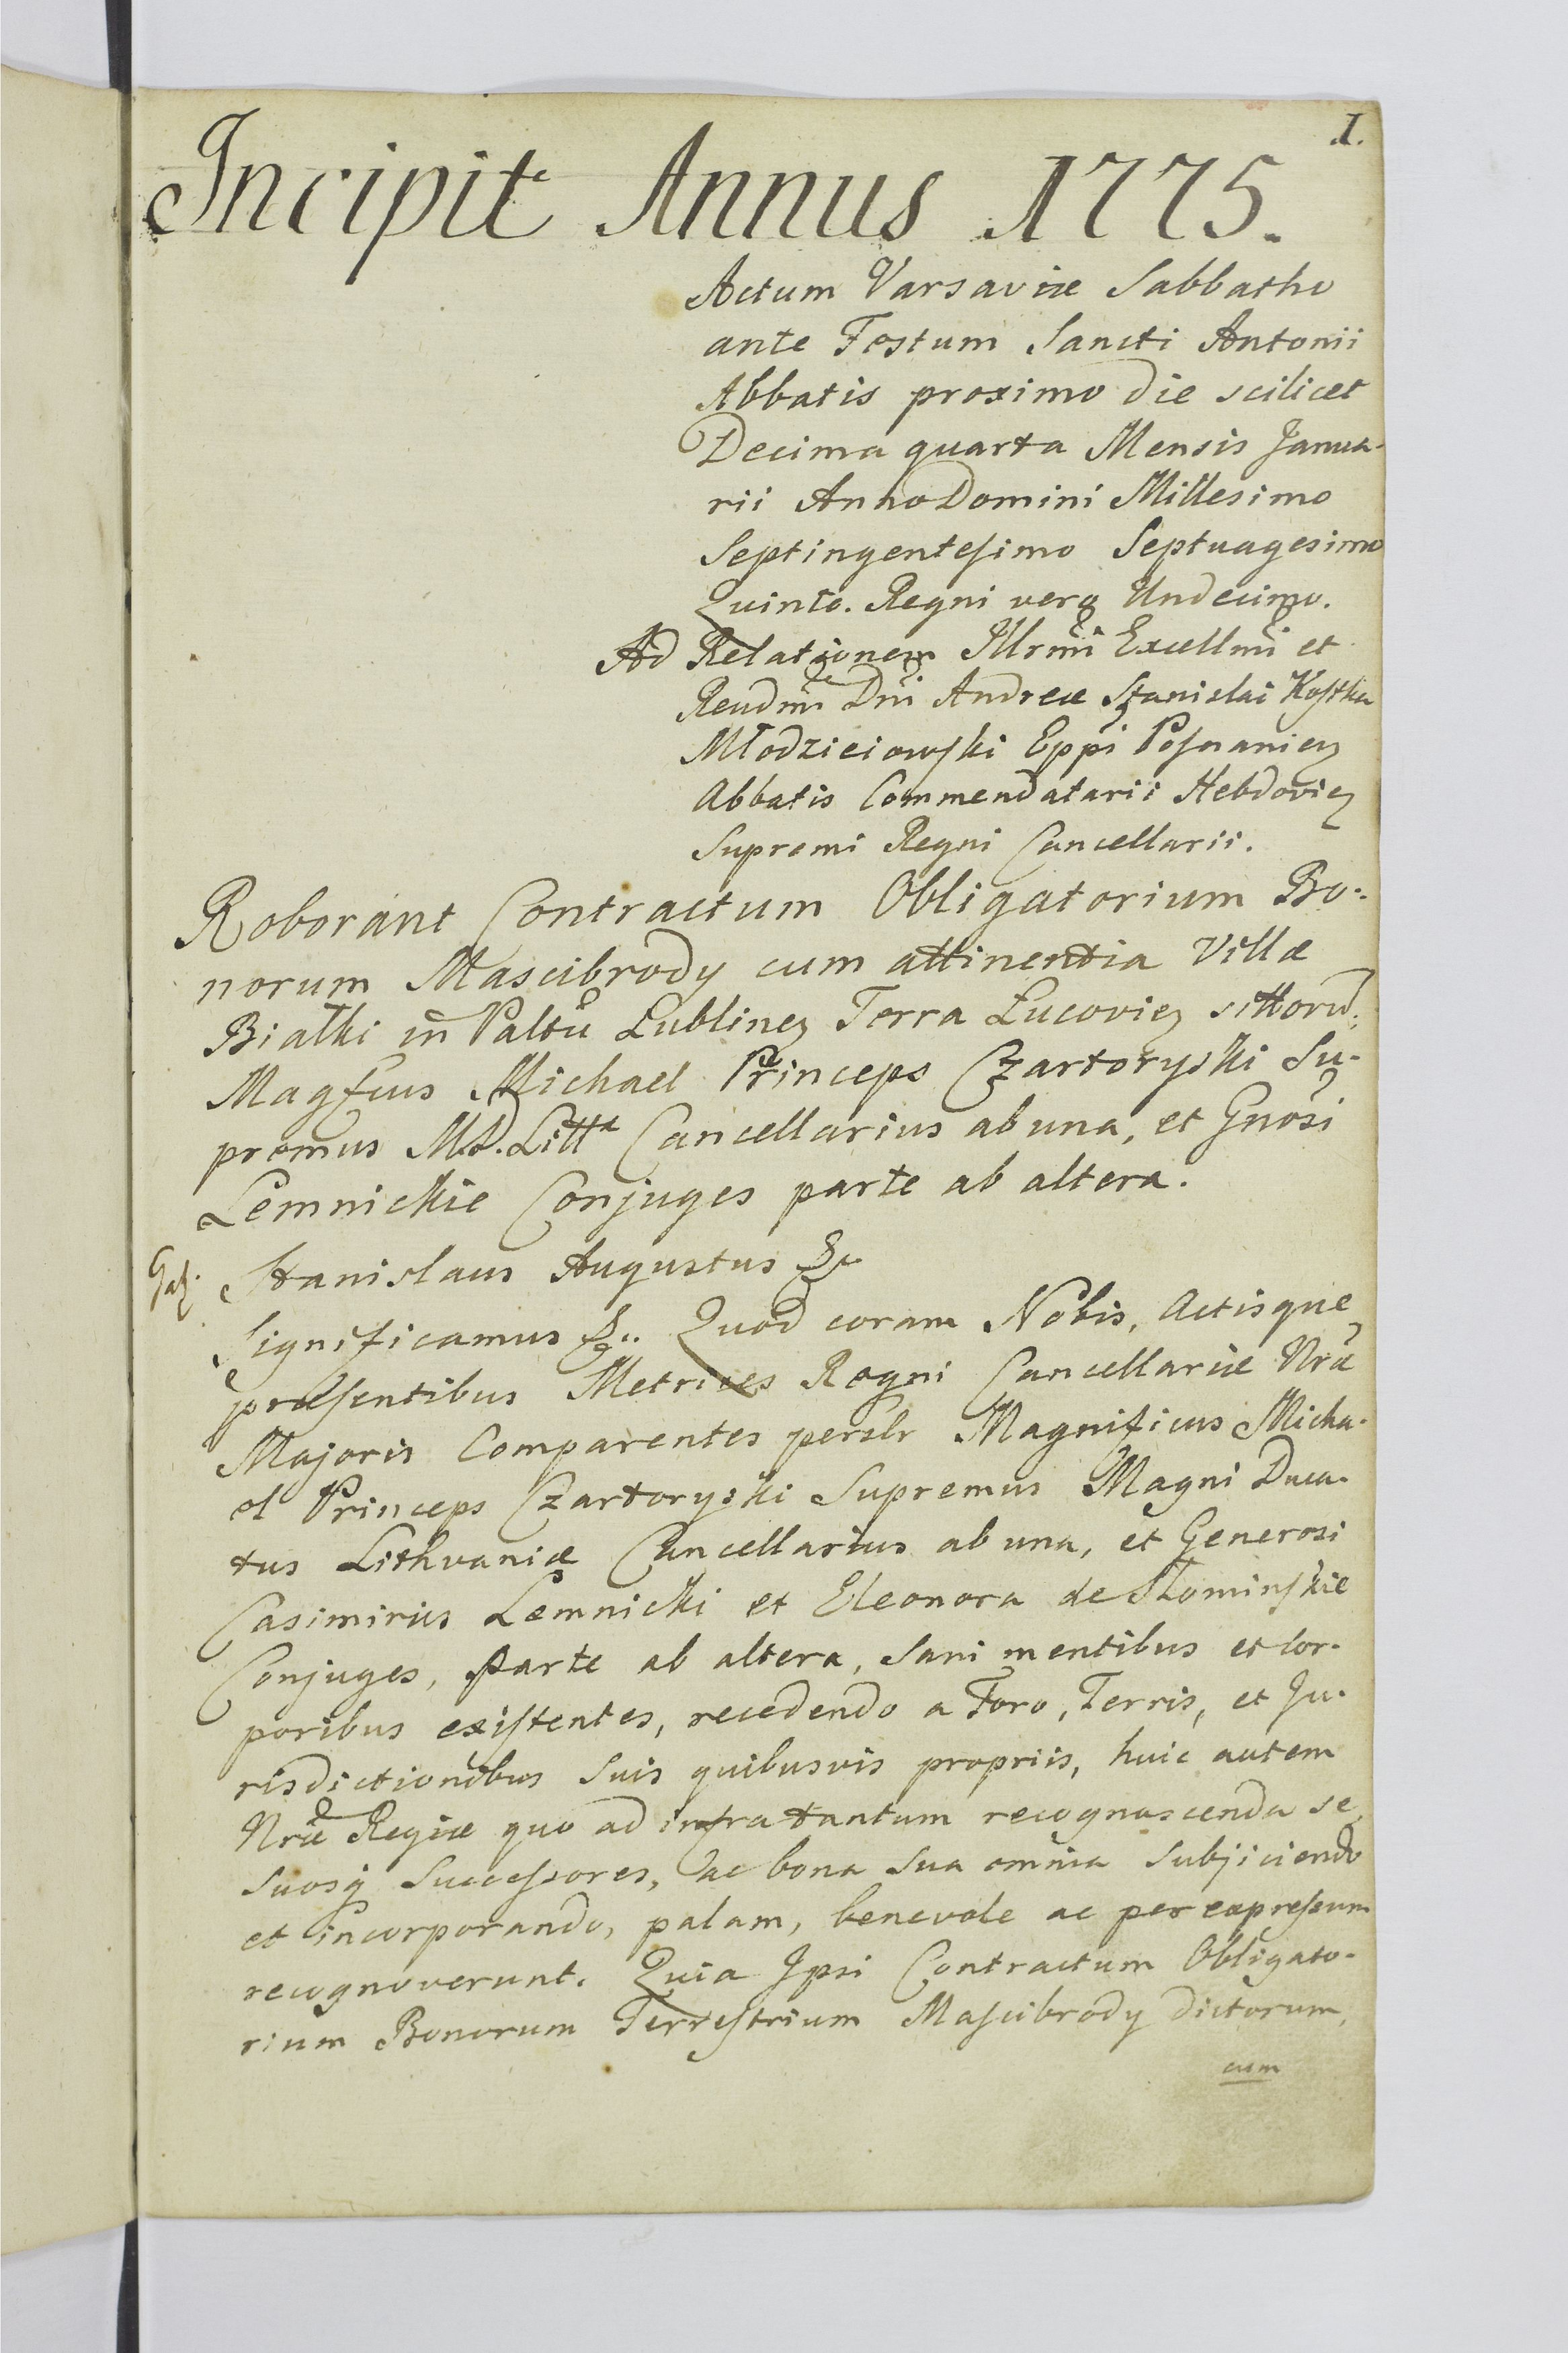 1.
Incipit Annus 1775.
Actum Varsaviæ Sabbatho
ante Festum Sancti Antonii
Abbatis proximo die scilicet
Decima quarta Mensis Janua-
rii Anno Domini Millesimo
Septingentesimo Septuagesimo
Quinto. Regni vero Undecimo.
Ad Relationem Illrmi Excellmi et
Reudmi Dni Andreæ Stanislai Kostka
Młodzieiowski Eppi Posnanien
Abbatis Commendatarii Hebdovien
Supremi Regni Cancellarii.
Roborant Contractum Obligatorium Bo-
norum Mascibrody cum attinentia Villa
Białki in Paltu Lublinen Terra Lucovien sittoru.
Magfcus Michael Princeps Czartoryski Su-
premus M.D. Litt Cancellarius ab una, et Gnosi
Lemnickie Conjuges parte ab altera.
Stanislaus Augustus &c
Significamus &c. Quod coram Nobis, Actisque
præsentibus Metrices Regni Cancellariæ Nræ
Majoris Comparentes perslr Magnificus Micha-
el Princeps Czartoryski Supremus Magni Duca-
tus Lithvaniæ Cancellarius ab una, et Generosi
Casimirus Lemnicki et Eleonora de Słominskie
Conjuges, parte ab altera, Sani mentibus et Cor-
poribus existentes, recedendo a Foro, Terris, et Ju-
risdictionibus Suis quibusvis propriis, huic autem
Nræ Regiæ quo ad infra tantum recognoscenda se,
suosq Successores, ac bona Sua omnia Subjiciendo
et incorporando, palam, benevole ac per expressum
recognoverunt. Quia Ipsi Contractum Obligato-
rium Bonorum Terrestrium Mascibrody dictorum,
cum